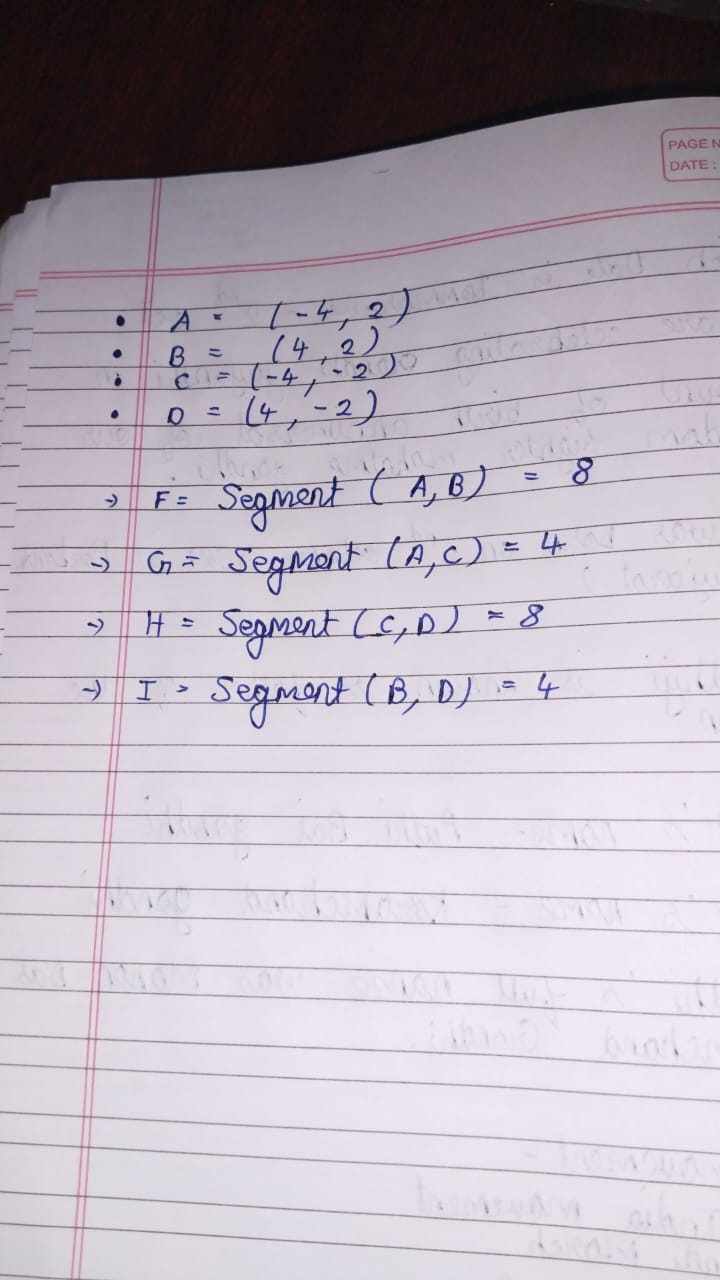 PAGE N
DATE :
• A = (-4, 2)
• B = (4, 2)
• C = (-4, -2)
• D = (4, -2)
→ F = Segment (A, B) = 8
→ G = Segment (A, C) = 4
→ H = Segment (C, D) = 8
→ I = Segment (B, D) = 4